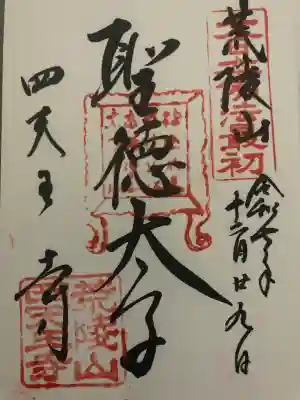 荒陵山
令和
十二月廿九日
聖徳太子
四天王寺
荒陵山
四天王寺